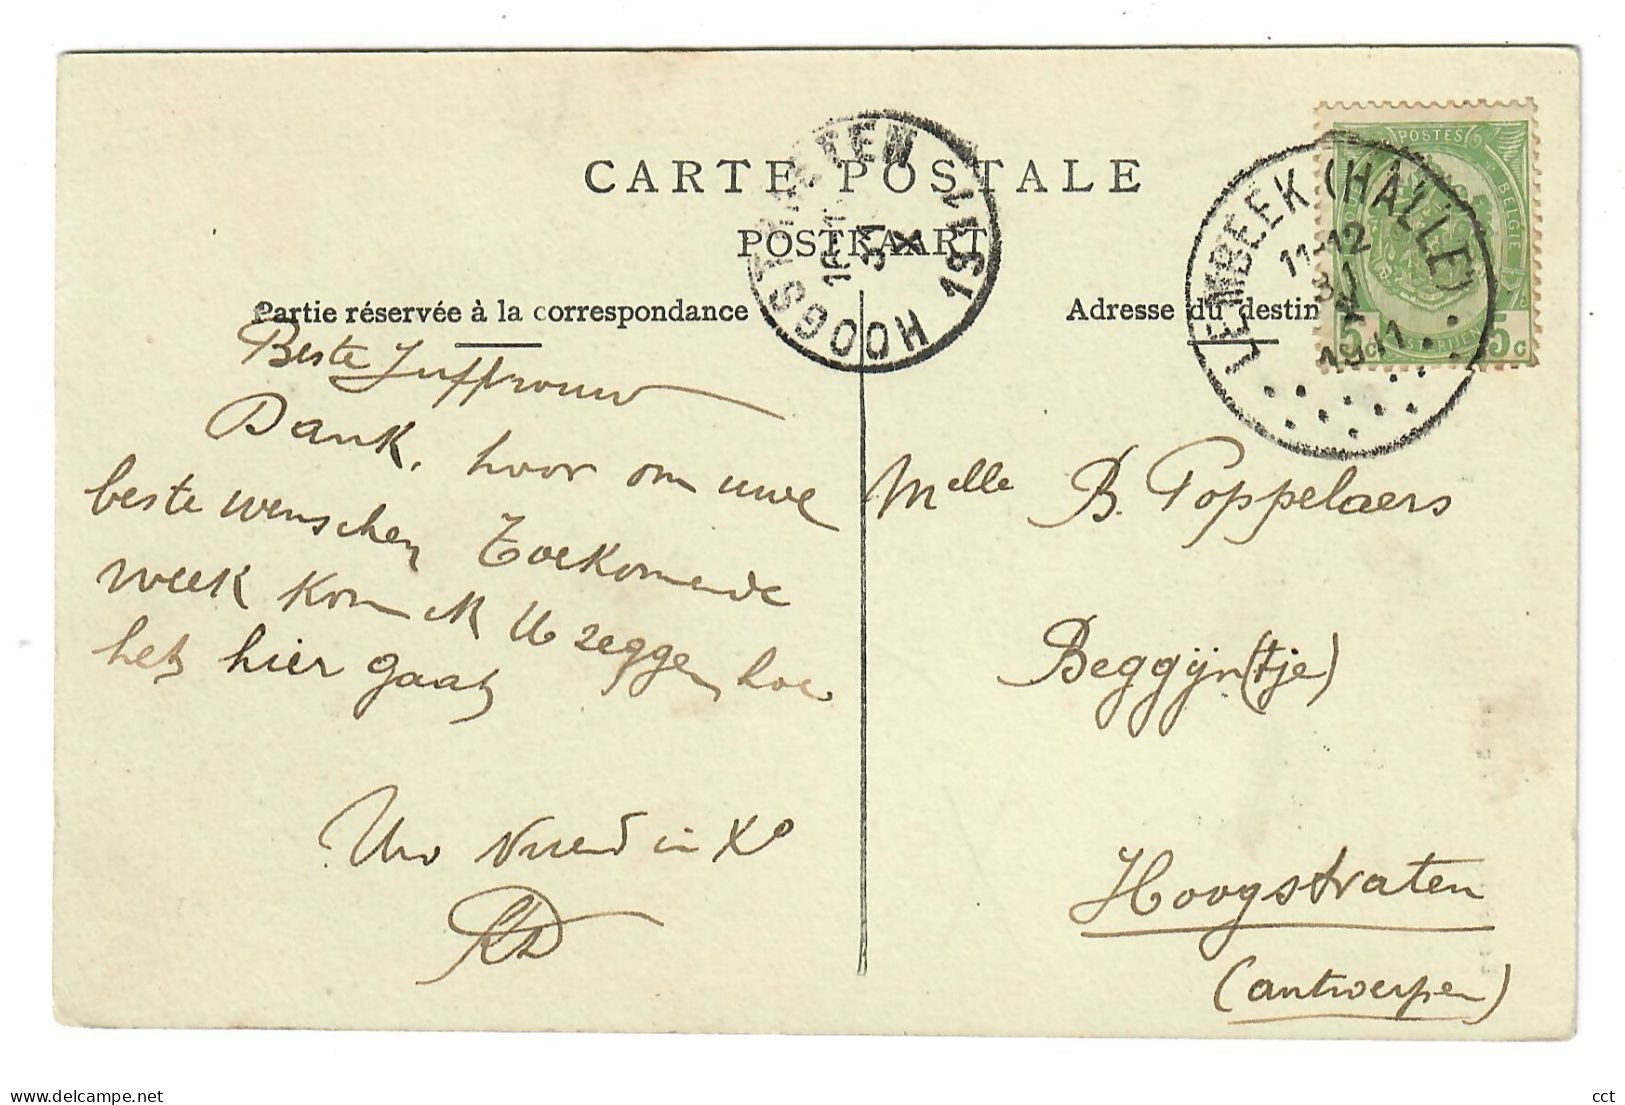 CARTE POSTALE
POSTKAART
Partie réservée à la correspondance
Adresse du destin
HOOGSTRATEN
X
1911
LEMBEEK (HALLE)
11-12
31
X
1911
POSTES
BELGIE
5c
5c
Beste Juffrouw
Dank, hoor om uwe
beste wenschen Toekomende
week kom ik U zeggen hoe
het hier gaat
Uw vriend in Xo
Melle B. Poppelaers
Beggijn(tje)
Hoogstraten
(antwerpen)
delcampe.net
cct